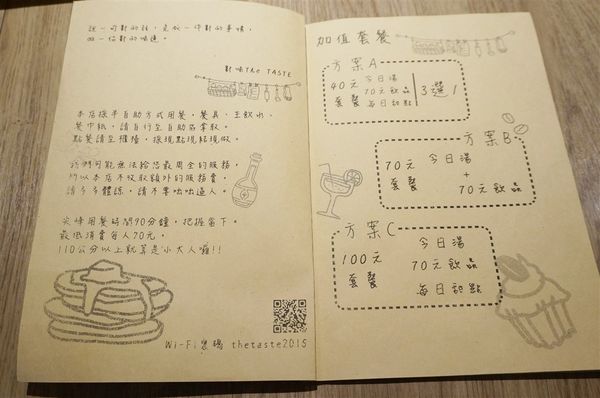 說一句對的話，是做一件對的事情，
做一份對的味道。
對味The TASTE
本店採半自助方式用餐，餐具、主飲水、
餐巾紙，請自行至自助區拿取。
點餐請至櫃檯，採現點現結現做。
我們可能無法給您最周全的服務，
所以本店不收取額外的服務費，
請多多體諒，請不要咄咄逼人。
尖峰用餐時間90分鐘，把握當下。
最低消費每人70元。
110公分以上就算是小大人囉!!
Wi-Fi密碼 thetaste2015
加值套餐
方案A
40元 套餐
今日湯
70元飲品
每日甜點
3選1
方案B
70元 套餐
今日湯
+
70元飲品
方案C
100元 套餐
今日湯
70元飲品
每日甜點